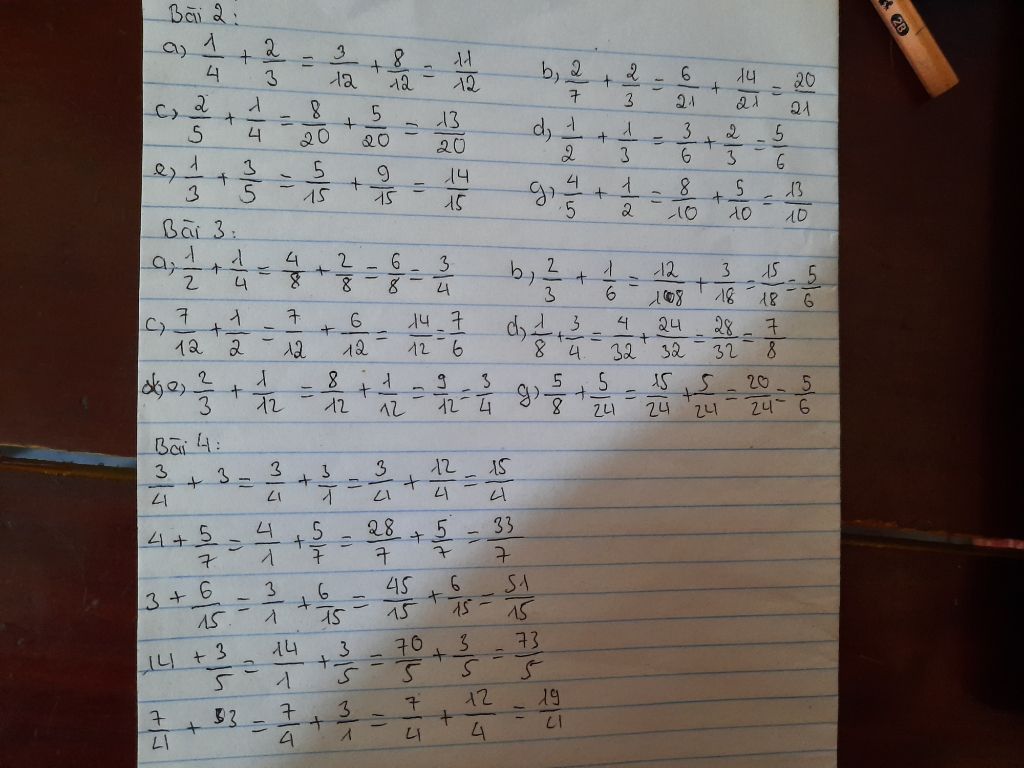 Bài 2:
a, 1/4 + 2/3 = 3/12 + 8/12 = 11/12
b, 2/7 + 2/3 = 6/21 + 14/21 = 20/21
c, 2/5 + 1/4 = 8/20 + 5/20 = 13/20
d, 1/2 + 1/3 = 3/6 + 2/3 = 5/6
e, 1/3 + 3/5 = 5/15 + 9/15 = 14/15
g, 4/5 + 1/2 = 8/10 + 5/10 = 13/10
Bài 3:
a, 1/2 + 1/4 = 4/8 + 2/8 = 6/8 = 3/4
b, 2/3 + 1/6 = 12/18 + 3/18 = 15/18 = 5/6
c, 7/12 + 1/2 = 7/12 + 6/12 = 14/12 = 7/6
d, 1/8 + 3/4 = 4/32 + 24/32 = 28/32 = 7/8
e, 2/3 + 1/12 = 8/12 + 1/12 = 9/12 = 3/4
g, 5/8 + 5/24 = 15/24 + 5/24 = 20/24 = 5/6
Bài 4:
3/4 + 3 = 3/4 + 3/1 = 3/4 + 12/4 = 15/4
4 + 5/7 = 4/1 + 5/7 = 28/7 + 5/7 = 33/7
3 + 6/15 = 3/1 + 6/15 = 45/15 + 6/15 = 51/15
14 + 3/5 = 14/1 + 3/5 = 70/5 + 3/5 = 73/5
7/4 + 3 = 7/4 + 3/1 = 7/4 + 12/4 = 19/4
2B